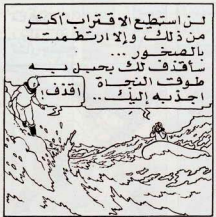 لن استطيع الاقتراب أكثر
من ذلك وإلا ارتطمت
بالصخور...
سأقذف لك بحبل به
طوق النجاة
اجذبه إليك..
اقذف!